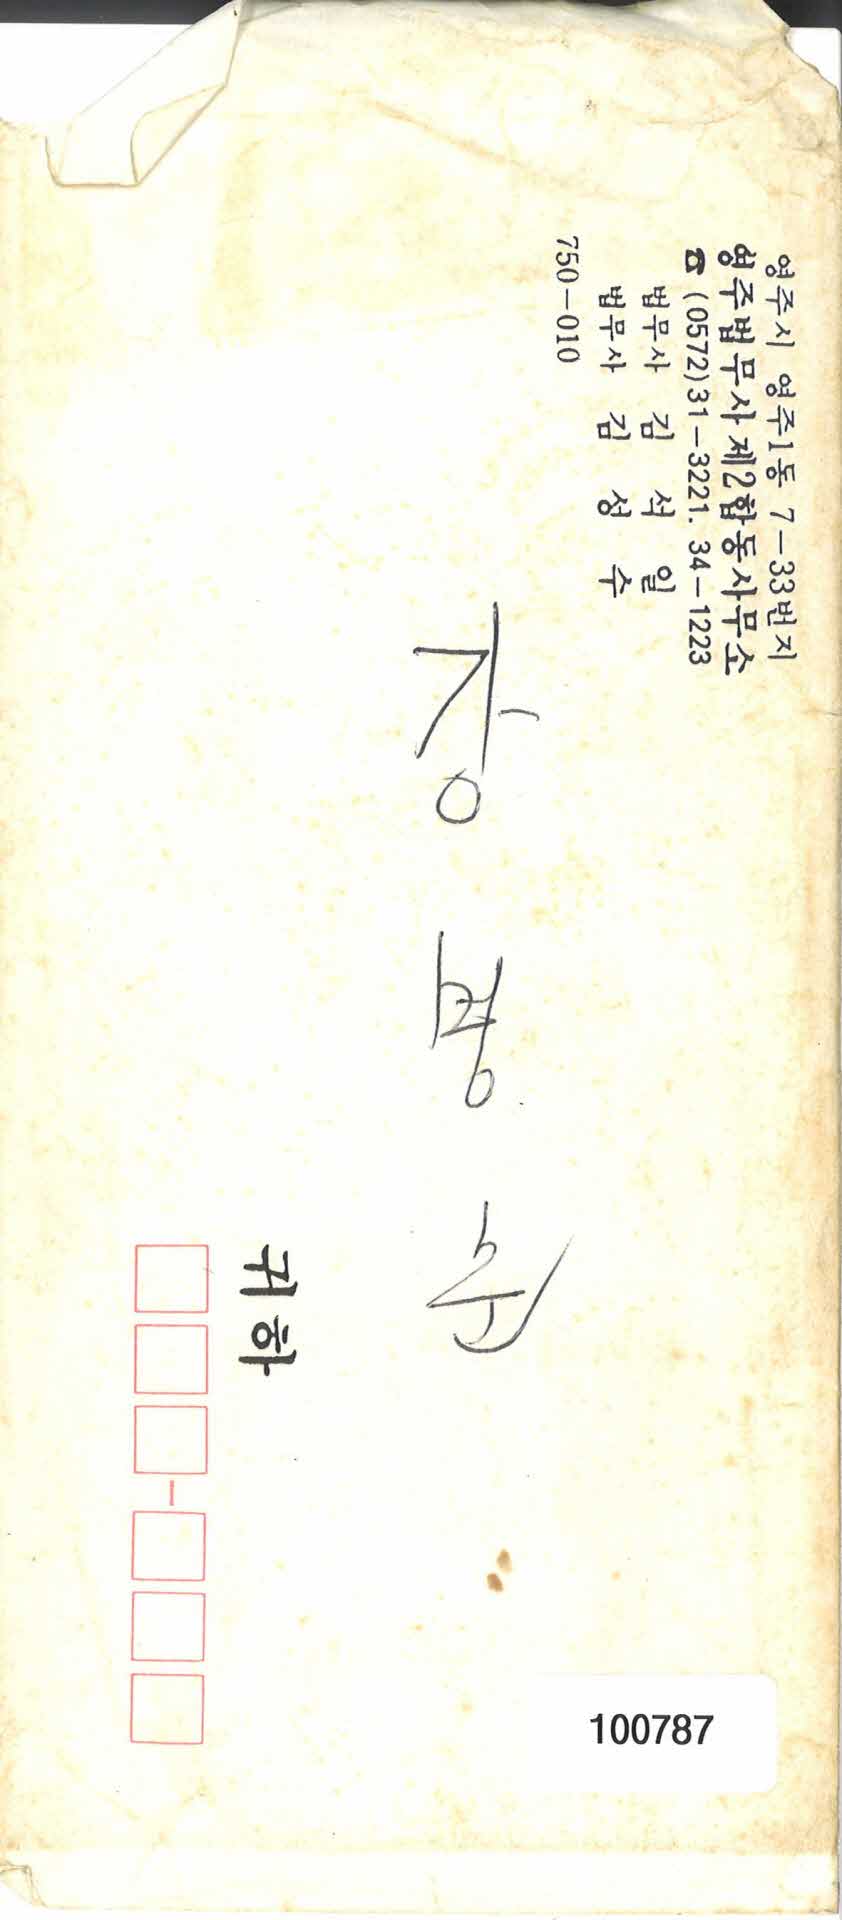 영주시 영주1동 7-33번지
영주법무사제2합동사무소
☎ (0572)31-3221. 34-1223
법무사 김석일
법무사 김성수
750-010
장경순
귀하
100787